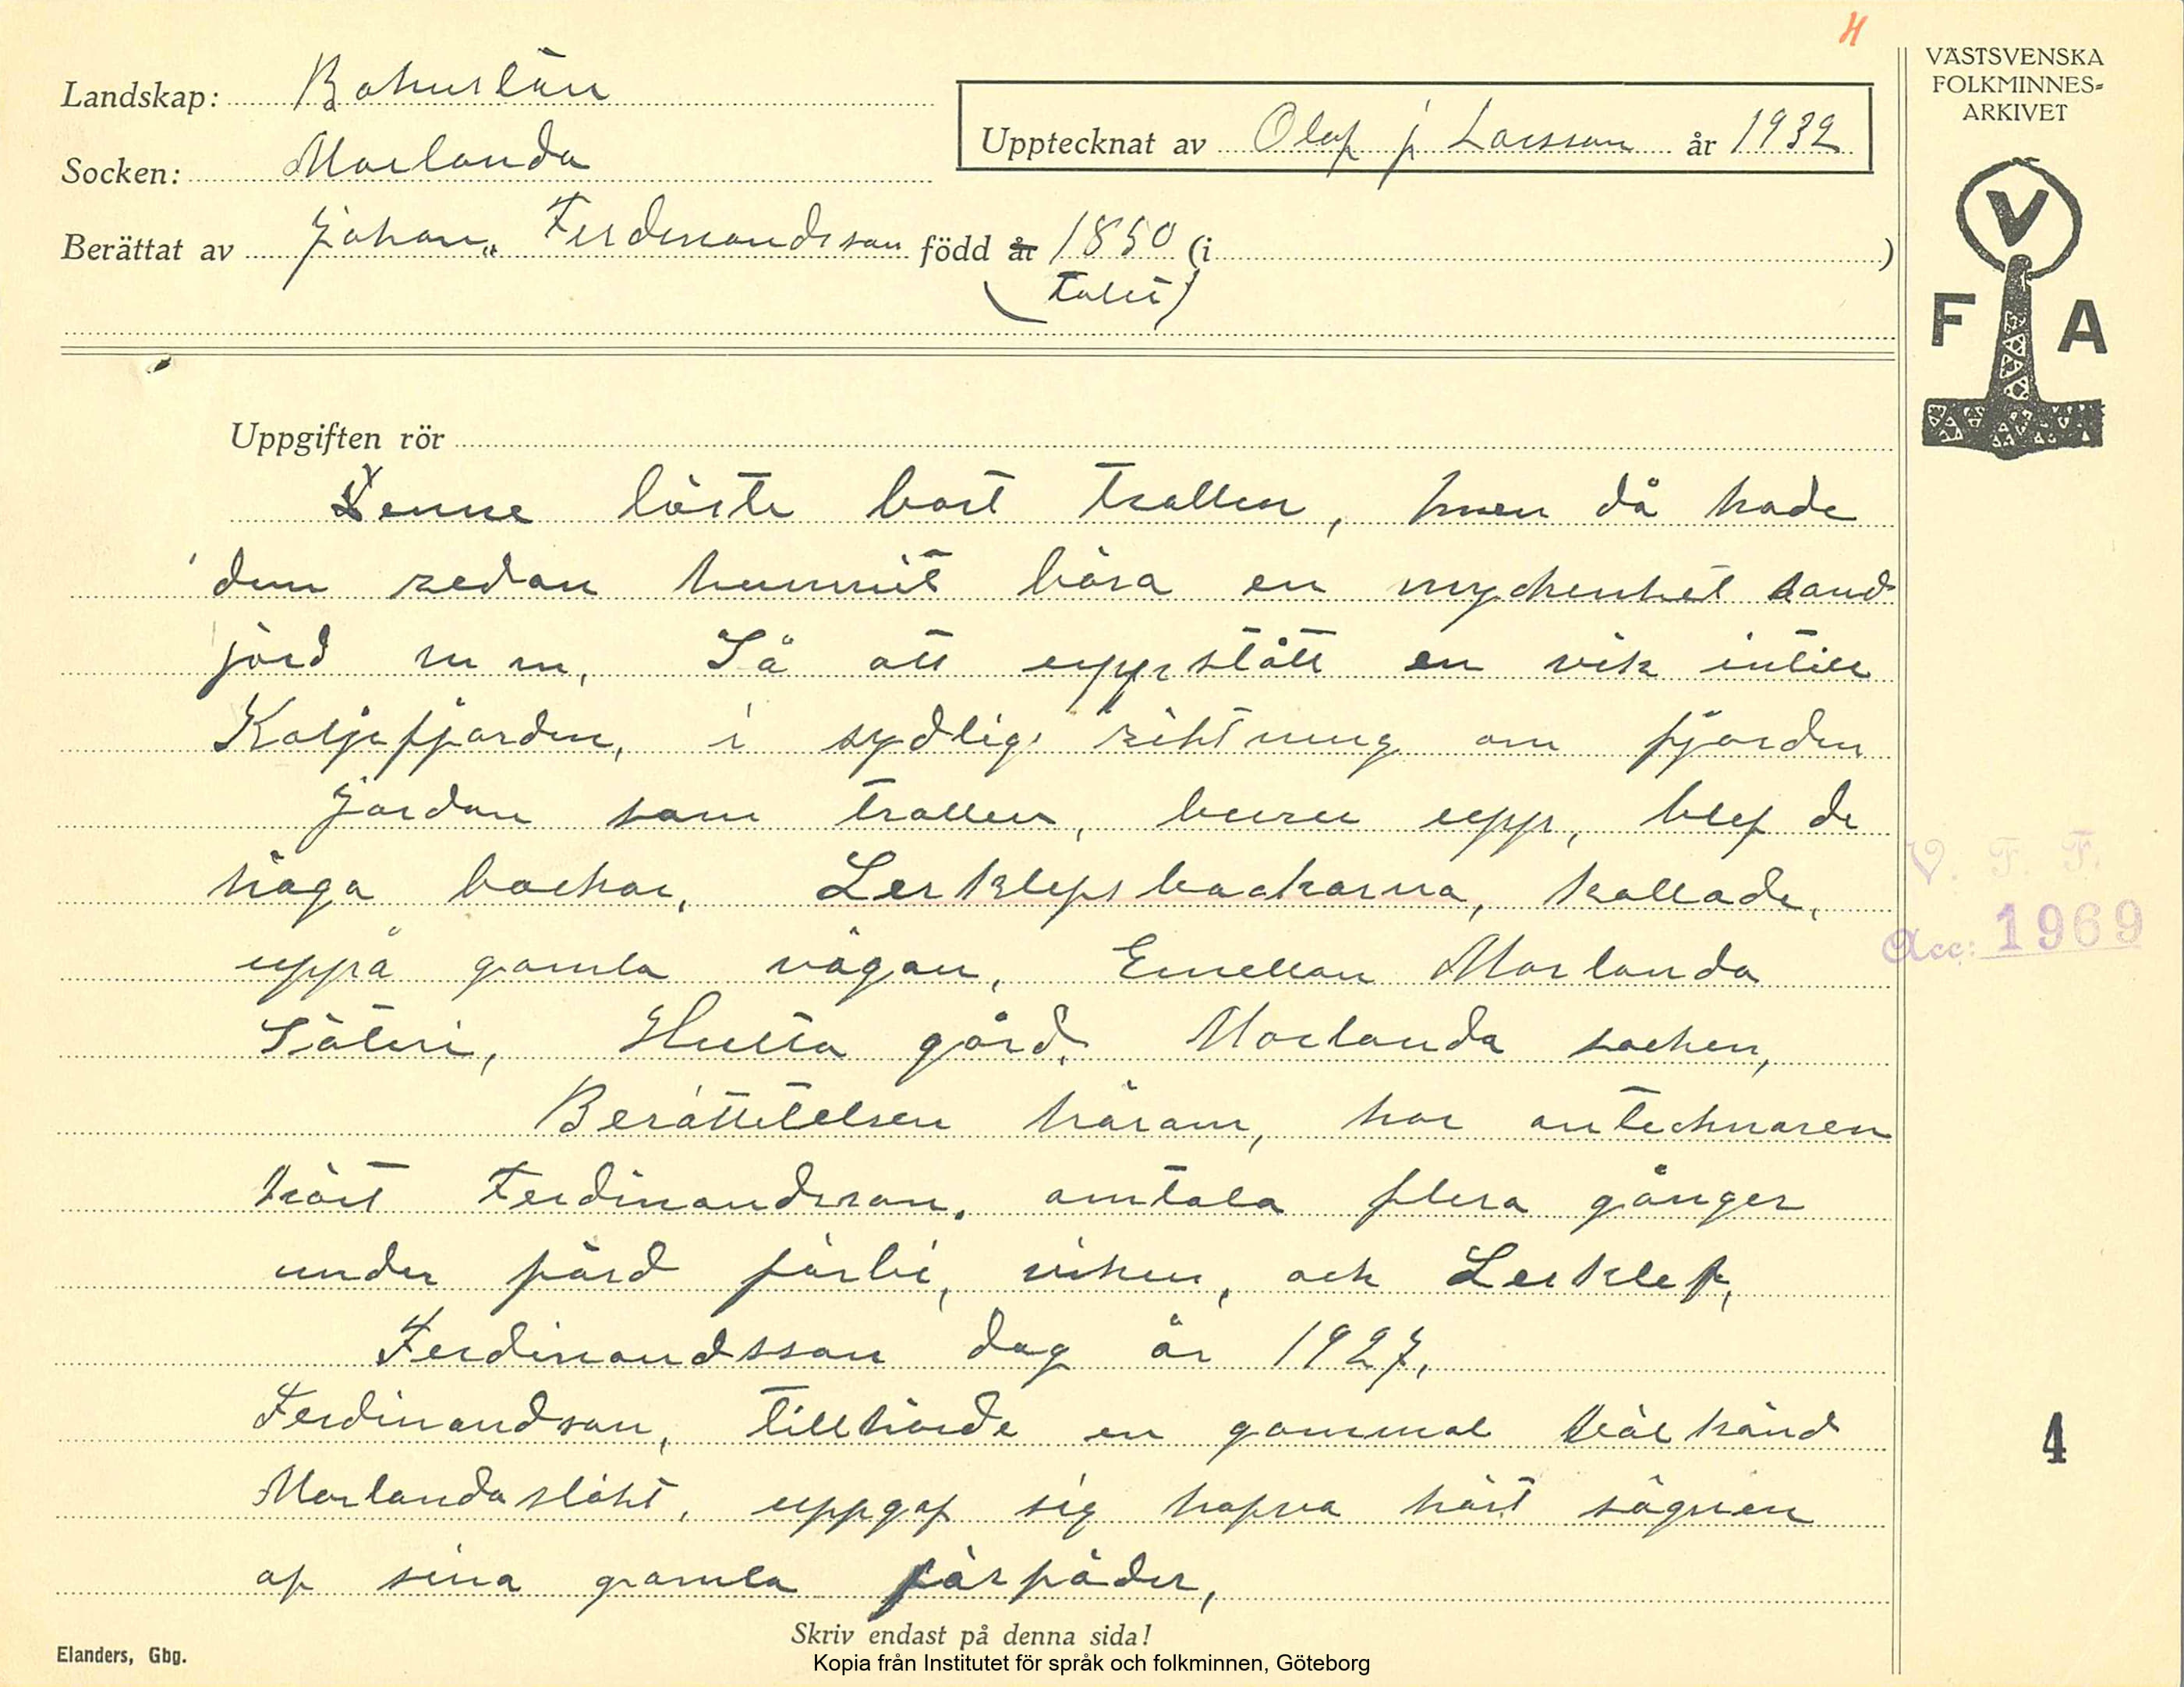 H
VÄSTSVENSKA
FOLKMINNES-
ARKIVET
Landskap: Bohuslän
Upptecknat av Olof j Larsson år 1932
Socken: Morlanda
Berättat av Johan Ferdinandsson född år 1850 (i )
(talet)
V
F A
Uppgiften rör
Denne läste bort trollen, men då hade
dem redan hunnit bära en myckenhet sand
jord m m, Så att uppstått en vik intill
Koljefjorden, i sydlig riktning om fjorden
Jordan som trollen, buru upp, blef de
höga backar, Lerklefsbackarna, kallade,
uppå gamla vägan, Emellan Morlanda
Säteri, Hulta gård. Morlanda socken,
Berättetelsen härom, har antecknaren
hört Ferdinandsson, omtala flera gånger
under färd förbi, viken, och Lerklef,
Ferdinandsson dog år 1927,
Ferdinandson, tillhörde en gammal väl känd
Morlandasläkt, uppgaf sig hafva hört sägnen
af sina gamla förfäder,
V. F. F.
Acc: 1969
4
Skriv endast på denna sida!
Elanders, Gbg.
Kopia från Institutet för språk och folkminnen, Göteborg